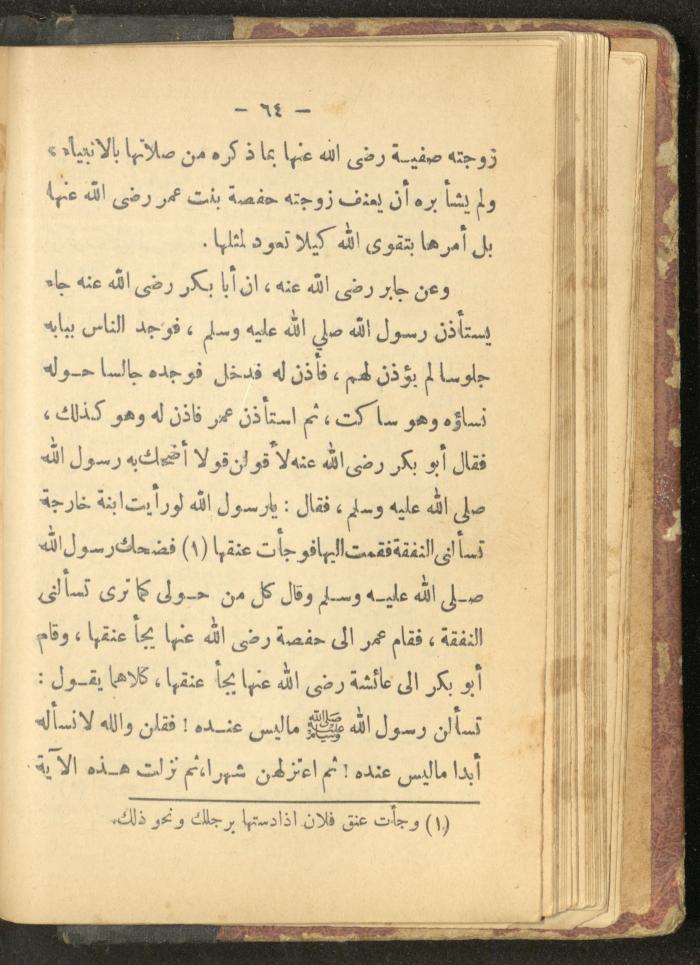 — ٦٤ —
زوجته صفيــة رضى الله عنها بما ذكره من صلاتها بالانبياء ،
ولم يشأ بره أن يعنف زوجته حفصة بنت عمر رضى الله عنها
بل أمرها بتقوى الله كيلا تعود لمثلها .
وعن جابر رضى الله عنه ، ان أبا بكر رضى الله عنه جاء
يستأذن رسول الله صلي الله عليه وسلم ، فوجد الناس ببابه
جلوسا لم يؤذن لهم ، فأذن له فدخل فوجده جالسا حــوله
نساؤه وهو ساكت ، ثم استأذن عمر فاذن له وهو كـذلك ،
فقال أبو بكر رضى الله عنه لأقولن قولا أضحك به رسول الله
صلى الله عليه وسلم ، فقال : يارسول الله لورأيت ابنة خارجة
تسألنى النفقة فقمت اليها فوجأت عنقها (١) فضحك رسول الله
صــلى الله عليــه وســلم وقال كل من حــولى كما ترى تسألنى
النفقة ، فقام عمر الى حفصة رضى الله عنها يجأ عنقها ، وقام
أبو بكر الى عائشة رضى الله عنها يجأ عنقها ، كلاهما يقــول :
تسألن رسول الله ﷺ ماليس عنــده ! فقلن والله لا نسأله
أبدا ماليس عنده ! ثم اعتزلهن شهرا ، ثم نزلت هــذه الآية
(١) وجأت عنق فلان اذا دستها برجلك ونحو ذلك.